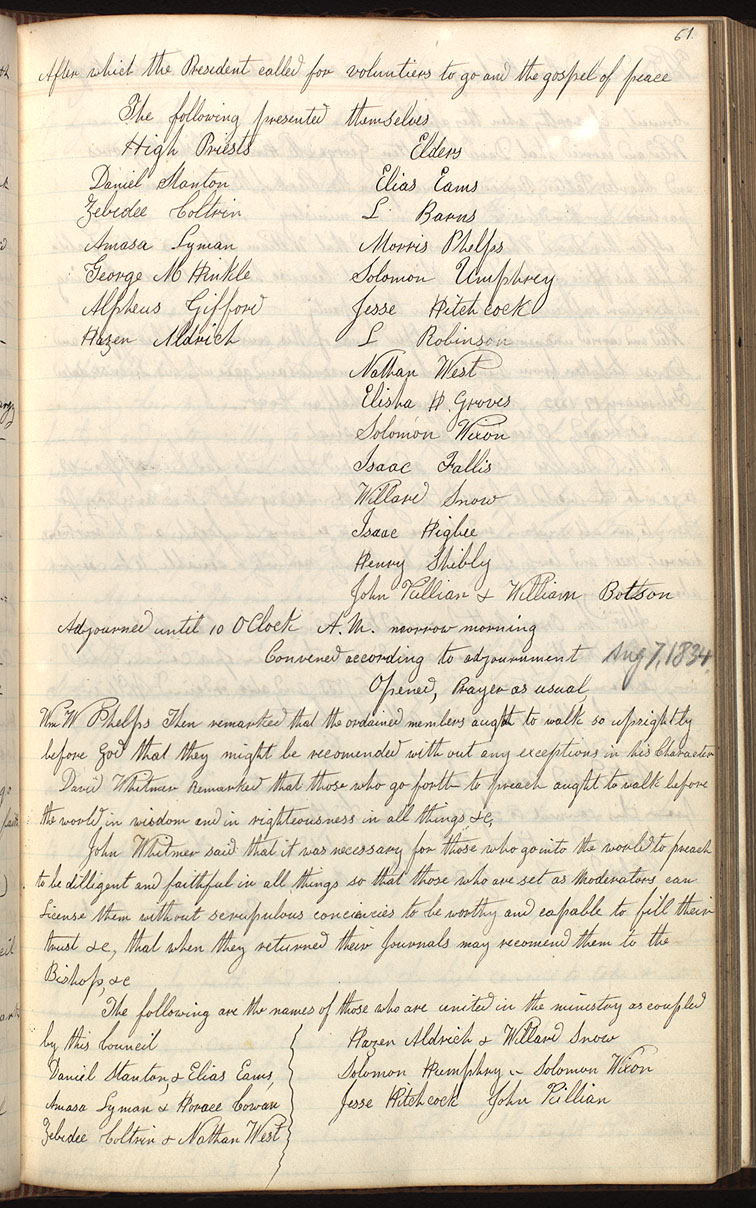 61
After which the President called for voluntiers to go and the gospel of peace
The following presented themselves
High Priests Elders
Daniel Stanton Elias Eams
Zebidee Coltrin L Barns
Amasa Lyman Morris Phelps
George M Hinkle Solomon Umphrey
Alpheus Gifford Jesse Hitchcock
Hazen Aldrich L Robinson
Nathan West
Elisha H. Groves
Solomon Wixon
Isaac Fallis
Willard Snow
Isaac Higbee
Henry Shibly
John Killian & William Botson
Adjourned until 10 OClock A.M. morrow morning
Convened according to adjournment Aug 7, 1834.
Opened, Prayer as usual,
Wm W Phelps Then remarked that the ordained members aught to walk so uprightly
before God that they might be recomended with out any exceptions in his Character
David Whitmer Remarked that those who go forth to preach aught to walk before
the world in wisdom and in righteousness in all things &c,
John Whitmer said that it was necessary for those who go into the world to preach
to be dilligent and faithful in all things so that those who are set as Moderators can
License them without scrupulous conciencies to be worthy and capable to fill their
trust &c, that when they returned their Journals may recomend them to the
Bishop, &c
The following are the names of those who are united in the ministory as coupled
by this Council
Daniel Stanton, & Elias Eams,
Amasa Lyman & Horace Cowan
Zebidee Coltrin & Nathan West
Hazen Aldrich & Willard Snow
Solomon Humphry & Solomon Wixon
Jesse Hitchcock John Killian